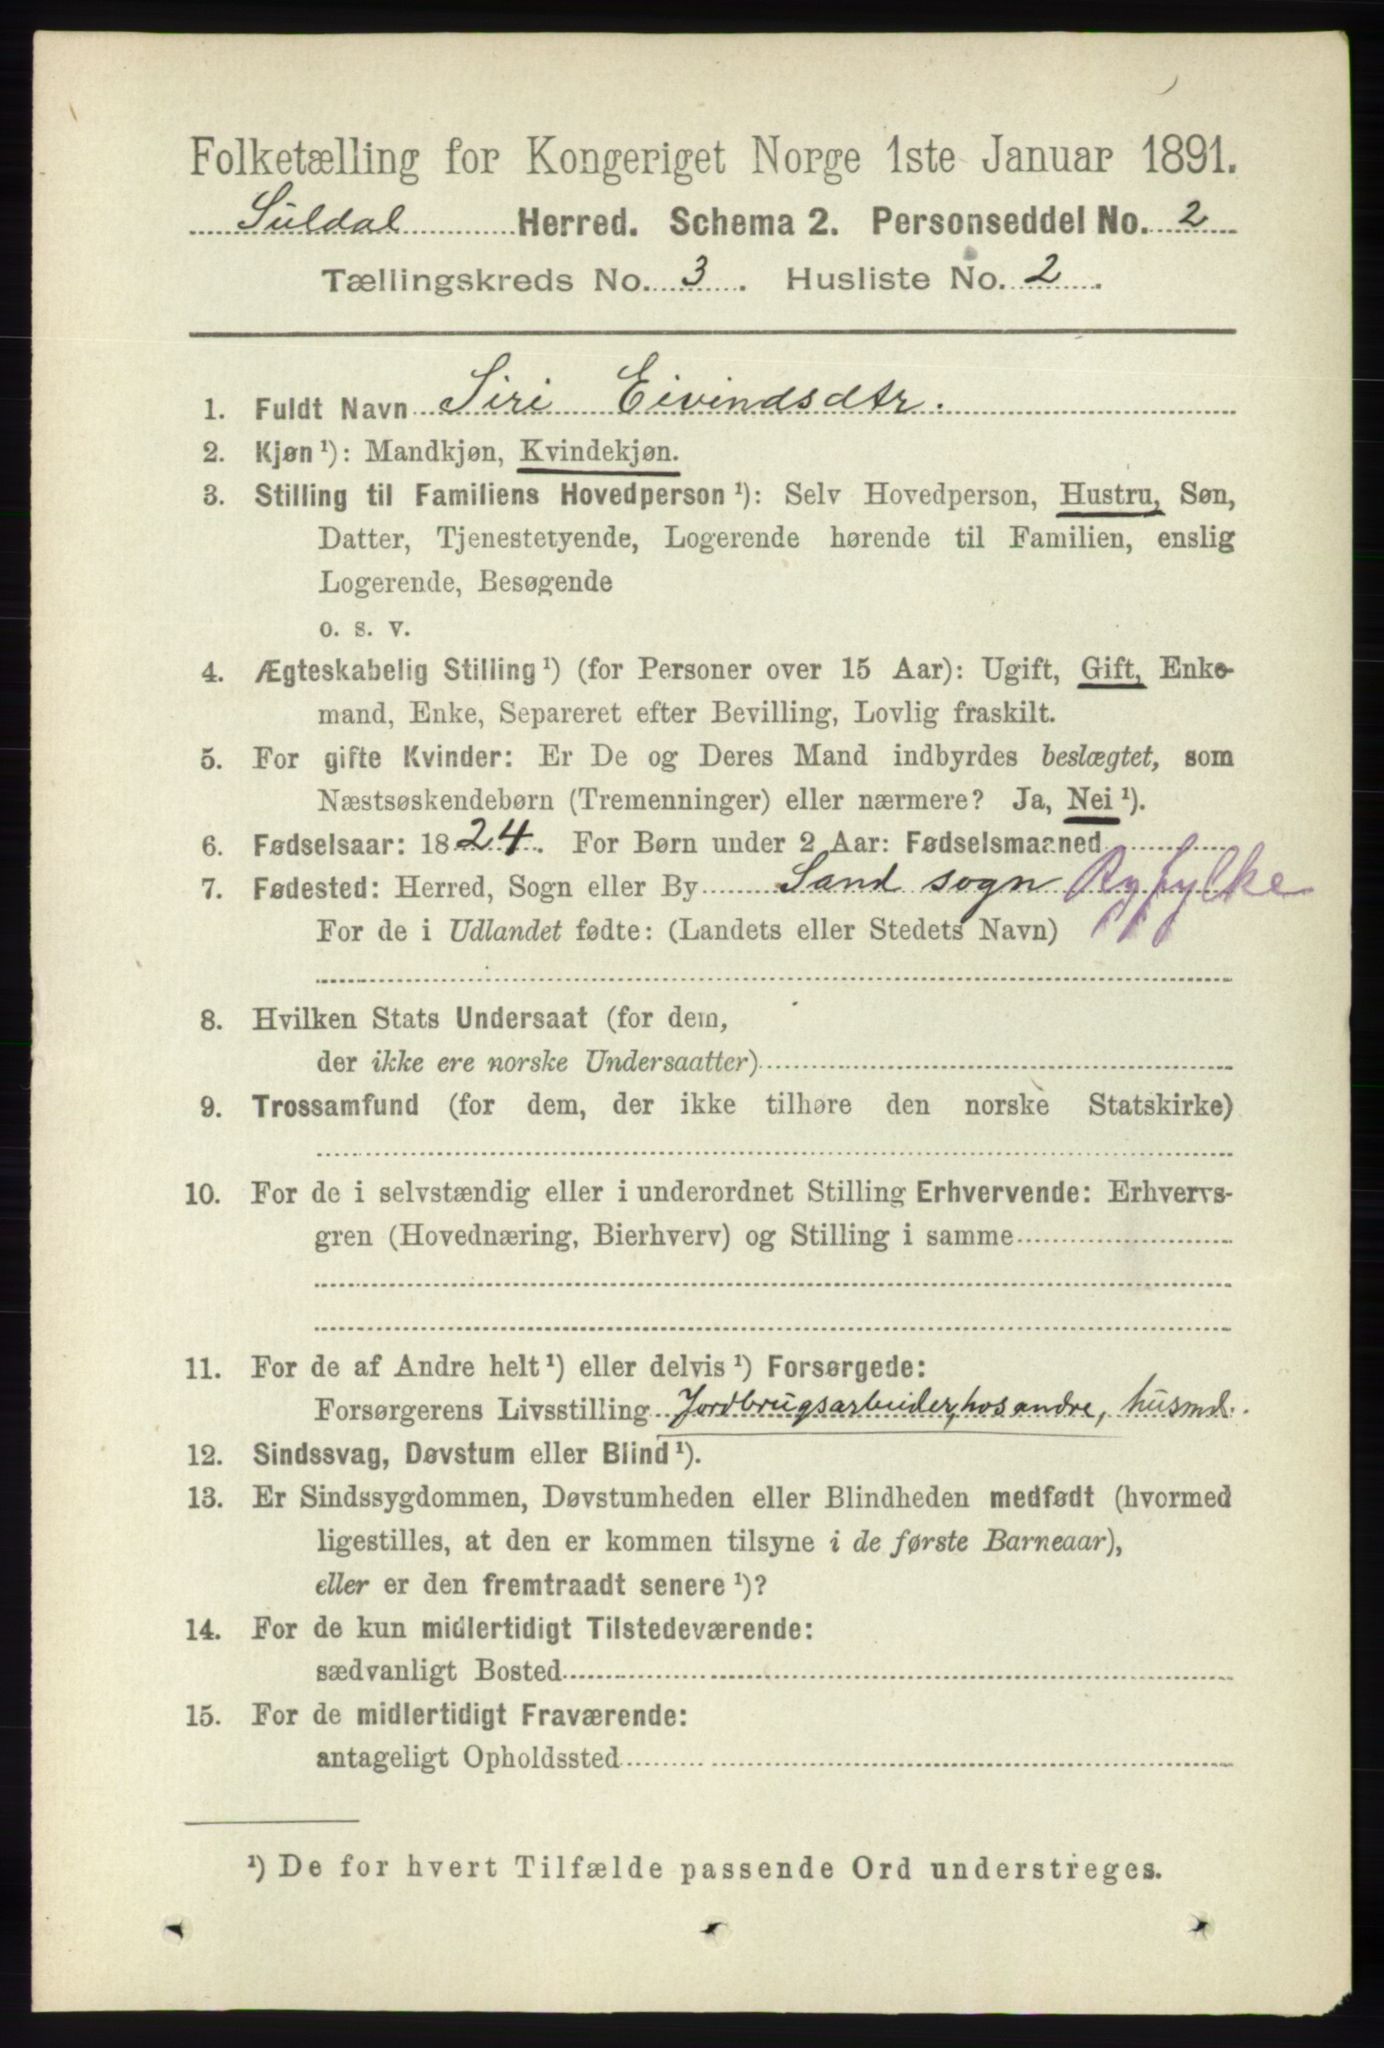 Folketælling for Kongeriget Norge 1ste Januar 1891.
Suldal Herred. Schema 2. Personseddel No. 2
Tællingskreds No. 3. Husliste No. 2.
1. Fuldt Navn Siri Eivindsdtr.
2. Kjøn¹): Mandkjøn, Kvindekjøn.
3. Stilling til Familiens Hovedperson¹): Selv Hovedperson, Hustru, Søn,
Datter, Tjenestetyende, Logerende hørende til Familien, enslig
Logerende, Besøgende
o. s. v.
4. Ægteskabelig Stilling¹) (for Personer over 15 Aar): Ugift, Gift, Enke-
mand, Enke, Separeret efter Bevilling, Lovlig fraskilt.
5. For gifte Kvinder: Er De og Deres Mand indbyrdes beslægtet, som
Næstsøskendebørn (Tremenninger) eller nærmere? Ja, Nei¹).
6. Fødselsaar: 1824. For Børn under 2 Aar: Fødselsmaaned
7. Fødested: Herred, Sogn eller By Sand sogn Ryfylke
For de i Udlandet fødte: (Landets eller Stedets Navn)
8. Hvilken Stats Undersaat (for dem,
der ikke ere norske Undersaatter)
9. Trossamfund (for dem, der ikke tilhøre den norske Statskirke)
10. For de i selvstændig eller i underordnet Stilling Erhvervende: Erhvervs-
gren (Hovednæring, Bierhverv) og Stilling i samme
11. For de af Andre helt¹) eller delvis¹) Forsørgede:
Forsørgerens Livsstilling Jordbrugsarbeider, hos andre, husmd.
12. Sindssvag, Døvstum eller Blind¹).
13. Er Sindssygdommen, Døvstumheden eller Blindheden medfødt (hvormed
ligestilles, at den er kommen tilsyne i de første Barneaar),
eller er den fremtraadt senere¹)?
14. For de kun midlertidigt Tilstedeværende:
sædvanligt Bosted
15. For de midlertidigt Fraværende:
antageligt Opholdssted
¹) De for hvert Tilfælde passende Ord understreges.